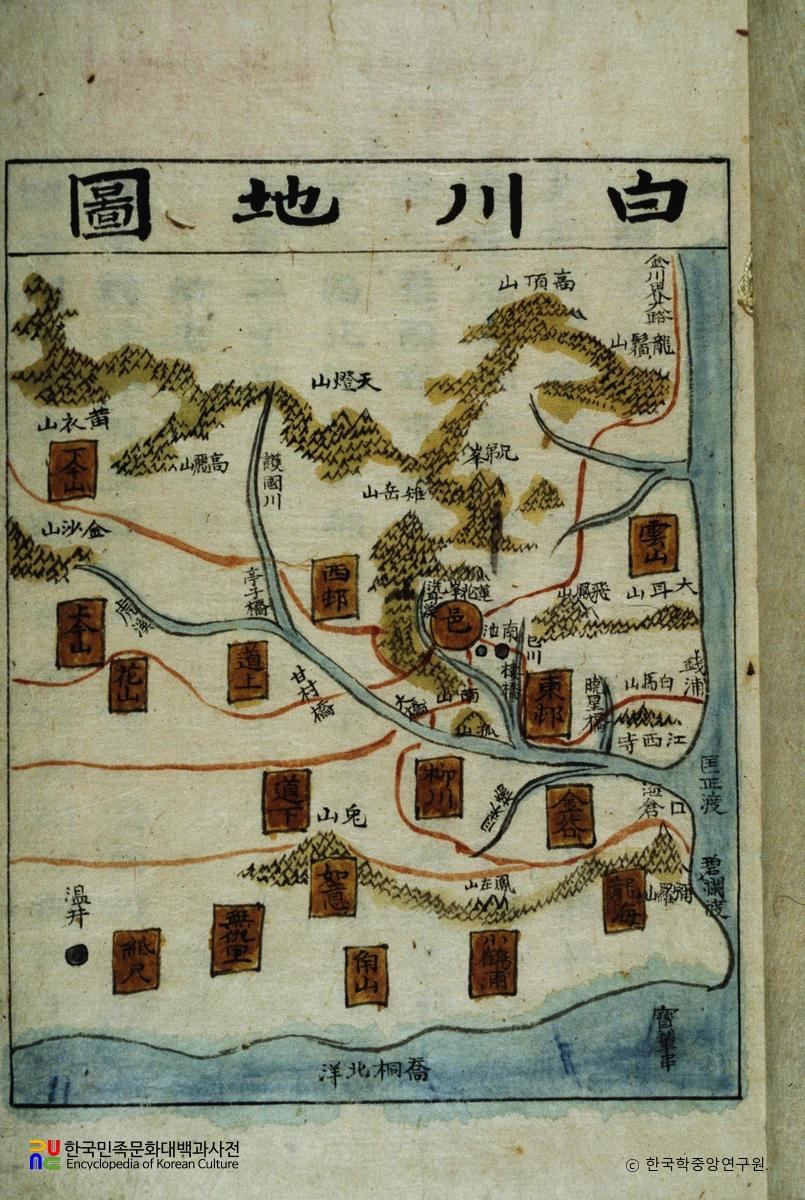 白川地圖
金川界大路
高頂山
龍鬚山
天燈山
黃衣山
高飛山
護國川
兄弟峯
雉岳山
下金山
金沙山
雲山
西村
亭子橋
蓮花峯
飛鳳山
大耳山
上金山
虎溪
邑
南池
花山
道上
甘村橋
大橋
南山
樓橋
東村
曉星橋
白馬山
錢浦
孤山
江西寺
道下
柳川
金谷
海倉
匡正渡
兎山
如意
鳳在山
龍海
彌羅山
碧瀾渡
溫井
紙尺
無仇里
角山
小鶴浦
喬桐北洋
한국민족문화대백과사전
Encyclopedia of Korean Culture
ⓒ 한국학중앙연구원.